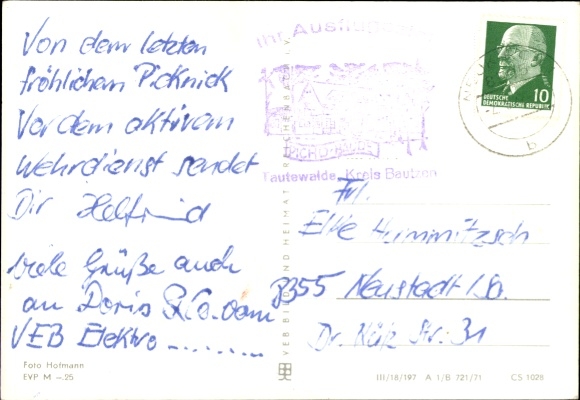 Von dem letzten
fröhlichen Picknick
Vor dem aktiven
Wehrdienst sendet
Dir Helfried
viele Grüße auch
an Doris & Co. vom
VEB Elektro ..........
Foto Hofmann
EVP M –.25
VEB BILD UND HEIMAT REICHENBACH I. V.
Ihr Ausflugs
Tautewalde, Kreis Bautzen
10
DEUTSCHE
DEMOKRATISCHE REPUBLIK
b
Frl.
Elke Hummitzsch
8355 Neustadt / Sa.
Dr. Külz Str. 31
III/18/197 A 1/B 721/71 CS 1028